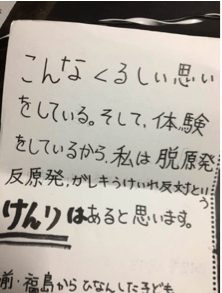 こんなくるしい思い
をしている。そして、体験
をしているから、私は脱原発
反原発、がしキうけいれ反対という
けんりはあると思います。
前・福島からひなんした子ども